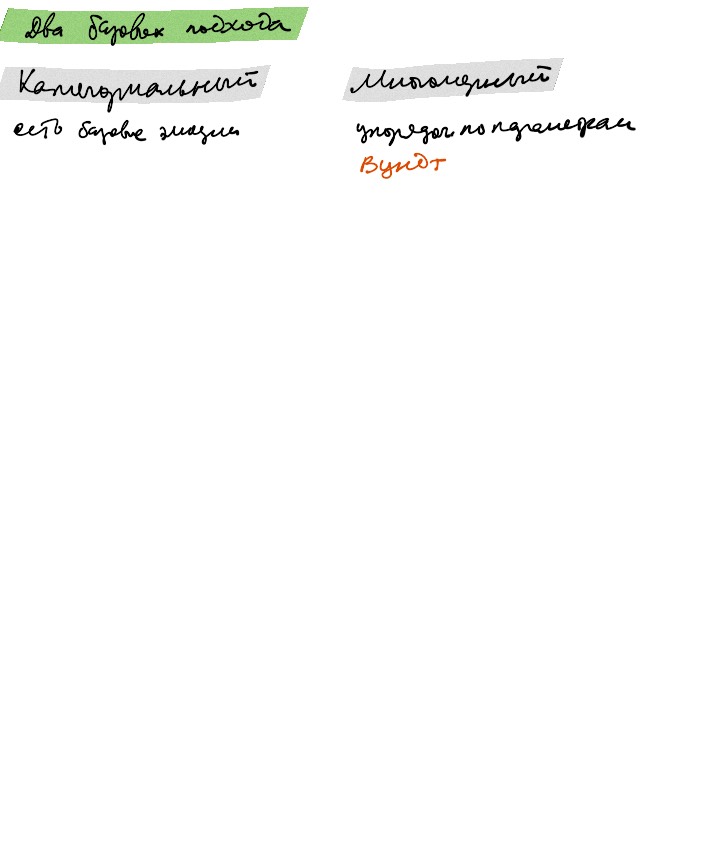 Два базовых подхода
Категориальный
есть базовые эмоции
Многомерный
упорядоч. по параметрам
Вундт